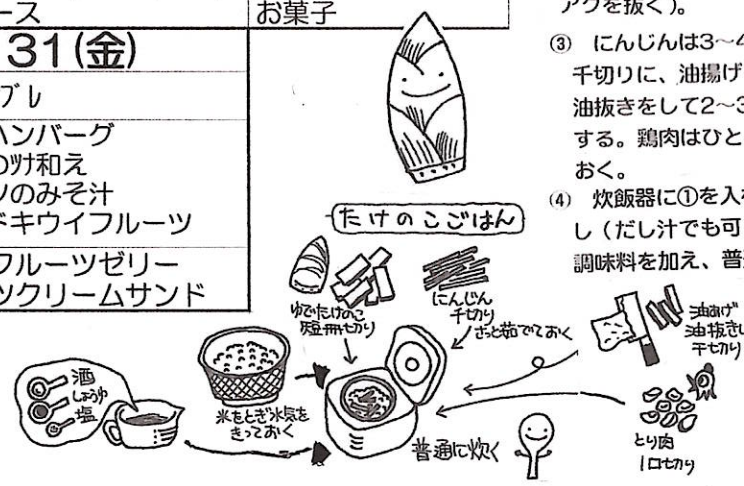 ース
お菓子
31(金)
ブレ
ハンバーグ
のツナ和え
ツのみそ汁
ドキウイフルーツ
フルーツゼリー
ツクリームサンド
アクを抜く)。
③ にんじんは3～4
千切りに、油揚げ
油抜きをして2～3
する。鶏肉はひと
おく。
④ 炊飯器に①を入
し(だし汁でも可
調味料を加え、普
たけのこごはん
ゆでたけのこ
短冊切り
にんじん
千切り
さっと茹でておく
油あげ
油抜きし
千切り
酒
しょうゆ
塩
米をとぎ水気を
きっておく
普通に炊く
とり肉
1口切り